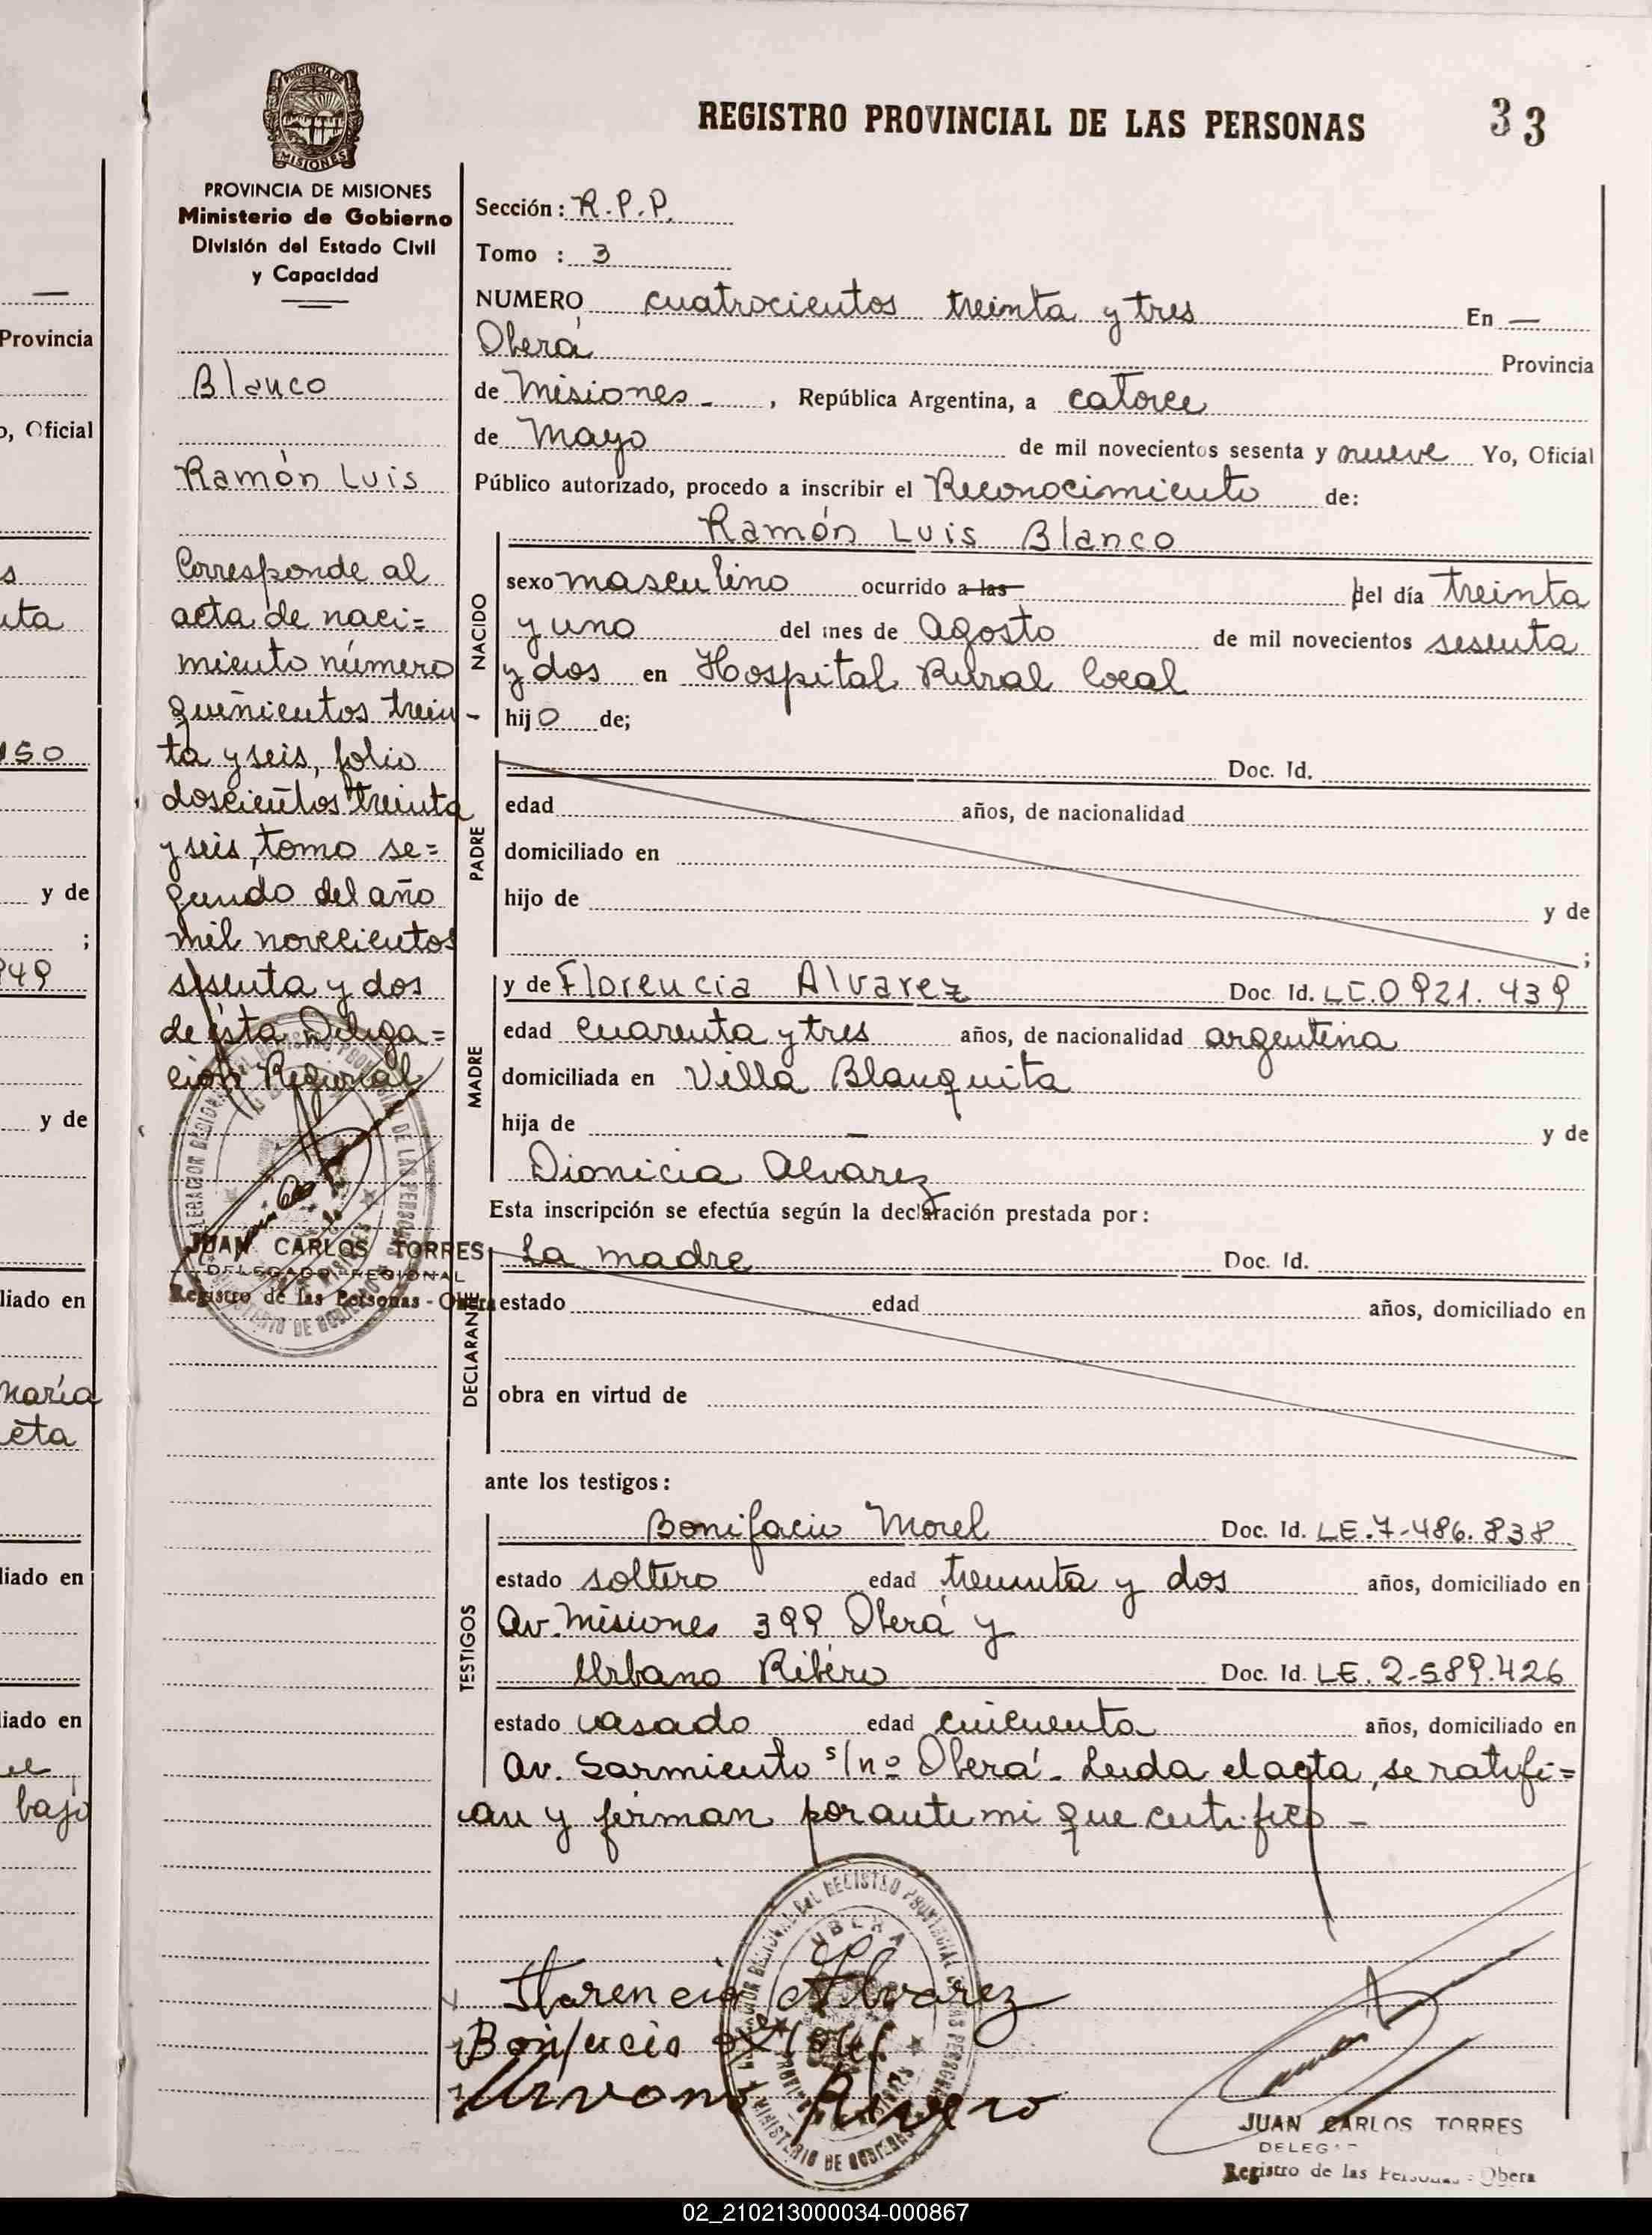 33
REGISTRO PROVINCIAL DE LAS PERSONAS
PROVINCIA DE MISIONES
MISIONES
PROVINCIA DE MISIONES
Ministerio de Gobierno
División del Estado Civil
y Capacidad
Blanco
Ramón Luis
Corresponde al
acta de naci=
miento número
quinientos trein-
ta y seis, folio
doscientos treinta
y seis, tomo se=
gundo del año
mil novecientos
sesenta y dos
de ésta Delega=
ción Regional
JUAN CARLOS TORRES
DELEGADO REGIONAL
Registro de las Personas - Obera
Sección: R.P.P.
Tomo : 3
NUMERO cuatrocientos treinta y tres En —
Oberá Provincia
de Misiones - , República Argentina, a catorce
de Mayo de mil novecientos sesenta y nueve Yo, Oficial
Público autorizado, procedo a inscribir el Reconocimiento de:
Ramón Luis Blanco
NACIDO
sexo masculino ocurrido a las del día treinta
y uno del mes de Agosto de mil novecientos sesenta
y dos en Hospital Rural local
hijo de;
PADRE
Doc. Id.
edad años, de nacionalidad
domiciliado en
hijo de y de
;
MADRE
y de Florencia Alvarez Doc. Id. LC.0921.439
edad cuarenta y tres años, de nacionalidad argentina
domiciliada en Villa Blanquita
hija de — y de
Dionicia Alvarez
Esta inscripción se efectúa según la declaración prestada por:
DECLARANTE
La madre Doc. Id.
estado edad años, domiciliado en
obra en virtud de
ante los testigos:
TESTIGOS
Bonifacio Morel Doc. Id. LE.7-486.838
estado soltero edad treinta y dos años, domiciliado en
Av. Misiones 399 Oberá y
Urbano Ribero Doc. Id. LE.2-589.426
estado casado edad cincuenta años, domiciliado en
Av. Sarmiento s/nº Oberá - Leida el acta, se ratifi=
can y firman por ante mi que certifico -
Florencia Alvarez
Bonifacio
Urvano Rivero
JUAN CARLOS TORRES
Registro de las Personas - Obera
Provincia
o, Oficial
y de
;
949
y de
liado en
maría
eta
liado en
liado en
bajo
02_210213000034-000867